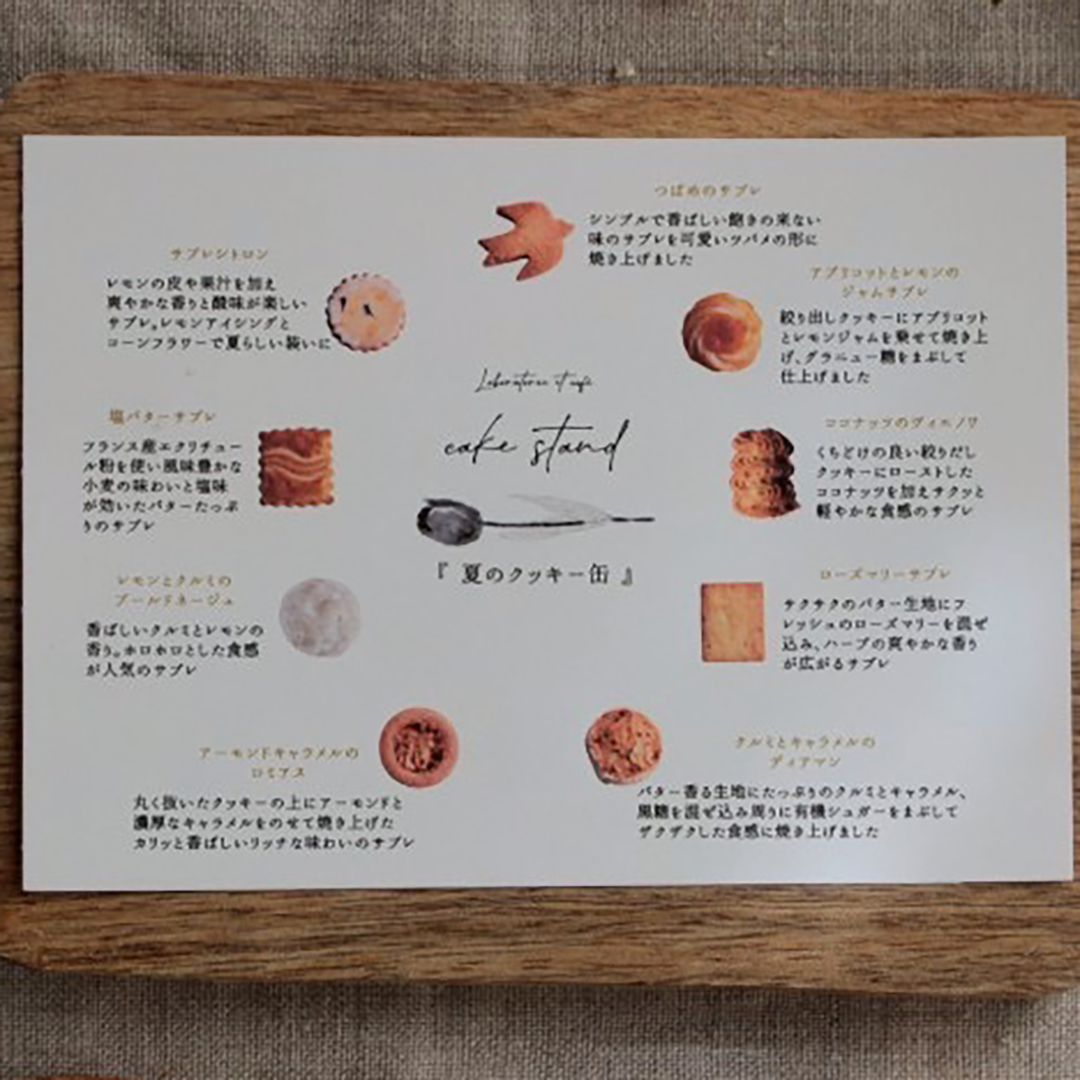 つばめのサブレ
シンプルで香ばしい飽きの来ない
味のサブレを可愛いツバメの形に
焼き上げました
サブレシトロン
レモンの皮や果汁を加え
爽やかな香りと酸味が楽しい
サブレ。レモンアイシングと
コーンフラワーで夏らしい装いに
アプリコットとレモンの
ジャムサブレ
絞り出しクッキーにアプリコット
とレモンジャムを乗せて焼き上
げ、グラニュー糖をまぶして
仕上げました
cake stand
『 夏のクッキー缶 』
塩バターサブレ
フランス産エクリチュー
ル粉を使い風味豊かな
小麦の味わいと塩味
が効いたバターたっぷ
りのサブレ
ココナッツのヴィエノワ
くちどけの良い絞りだし
クッキーにローストした
ココナッツを加えサクッと
軽やかな食感のサブレ
レモンとクルミの
ブールドネージュ
香ばしいクルミとレモンの
香り。ホロホロとした食感
が人気のサブレ
ローズマリーサブレ
サクサクのバター生地にフ
レッシュのローズマリーを混ぜ
込み、ハーブの爽やかな香り
が広がるサブレ
アーモンドキャラメルの
ロミアス
丸く抜いたクッキーの上にアーモンドと
濃厚なキャラメルをのせて焼き上げた
カリッと香ばしいリッチな味わいのサブレ
クルミとキャラメルの
ディアマン
バター香る生地にたっぷりのクルミとキャラメル、
黒糖を混ぜ込み周りに有機シュガーをまぶして
ザクザクした食感に焼き上げました